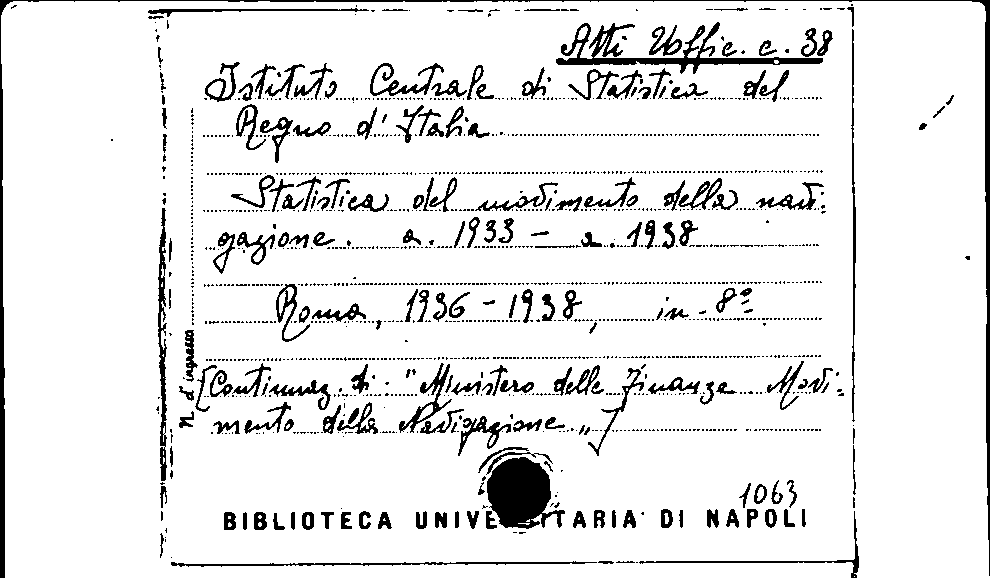 Atti Uffic. c. 38
Istituto Centrale di Statistica del
Regno d'Italia.
Statistica del movimento della navi:
gazione. a. 1933 - a. 1938
Roma, 1936-1938, in-8º
[Continuaz. di: "Ministero delle Finanze Movi:
mento della Navigazione"]
N. d'ingresso
1063
BIBLIOTECA UNIVERSITARIA DI NAPOLI